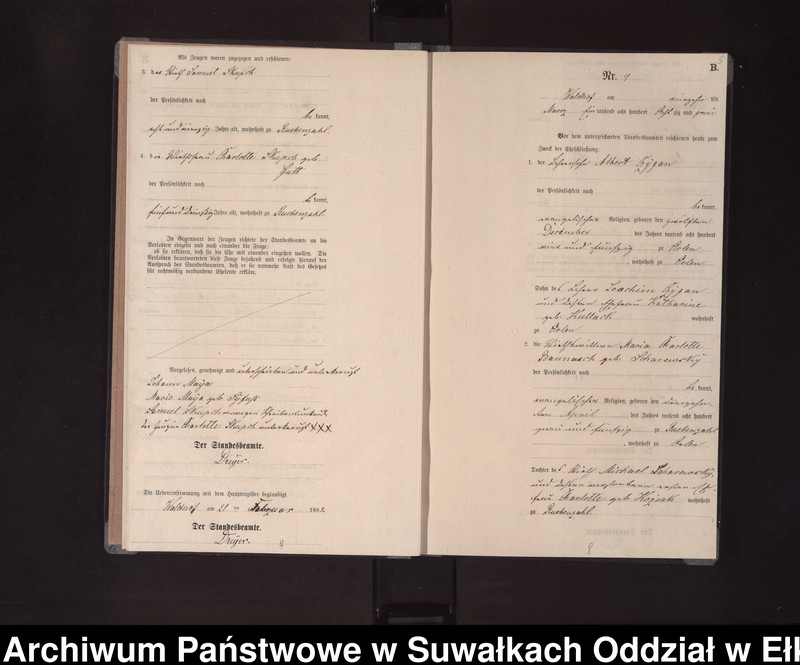 Als Zeugen waren zugezogen und erschienen:
3. der Wirth Samuel Skupch
der Persönlichkeit nach
be kannt,
acht und vierzig Jahre alt, wohnhaft zu Ruebenzahl.
4. die Wirthsfrau Charlotte Skupch geb.
der Persönlichkeit nach
be kannt,
fünf und dreißig Jahre alt, wohnhaft zu Ruebenzahl.
In Gegenwart der Zeugen richtete der Standesbeamte an die
Verlobten einzeln und nach einander die Frage:
ob sie erklären, daß sie die Ehe mit einander eingehen wollen. Die
Verlobten beantworteten diese Frage bejahend und erfolgte hierauf der
Ausspruch des Standesbeamten, daß er sie nunmehr kraft des Gesetzes
für rechtmäßig verbundene Eheleute erkläre.
Vorgelesen, genehmigt und unterschrieben und unterkreuzt
Johann Maija
Marie Maija geb.
Samuel Skupch wegen Schreibensunkunde
der Zeugin Charlotte Skupch unterkreuzt XXX
Der Standesbeamte.
Dreyer.
Die Uebereinstimmung mit dem Hauptregister beglaubigt
am 21 ten Februar 188
Der Standesbeamte.
Dreyer.
B.
Nr. 4
am
Maerz ein tausend acht hundert acht zig und zwei
Vor dem unterzeichneten Standesbeamten erschienen heute zum
Zweck der Eheschließung:
1. der Albert Czygan
der Persönlichkeit nach
be kannt,
evangelischer Religion, geboren den zwölften
December des Jahres tausend acht hundert
und fünfzig zu Orlen
, wohnhaft zu Orlen
Sohn des Lehrers Joachim Czygan
und dessen Ehefrau Katharine
geb. Kullack wohnhaft
zu Orlen
2. die Maria Charlotte
Bannasch geb.
der Persönlichkeit nach
be kannt,
evangelischer Religion, geboren den
ten April des Jahres tausend acht hundert
zwei und fünfzig zu Ruebenzahl
, wohnhaft zu Orlen
Tochter des Wirth Michael
und dessen verstorbenen ersten Ehe-
frau Charlotte geb. wohnhaft
zu Ruebenzahl
Archiwum Państwowe w Suwałkach Oddział w Ełk